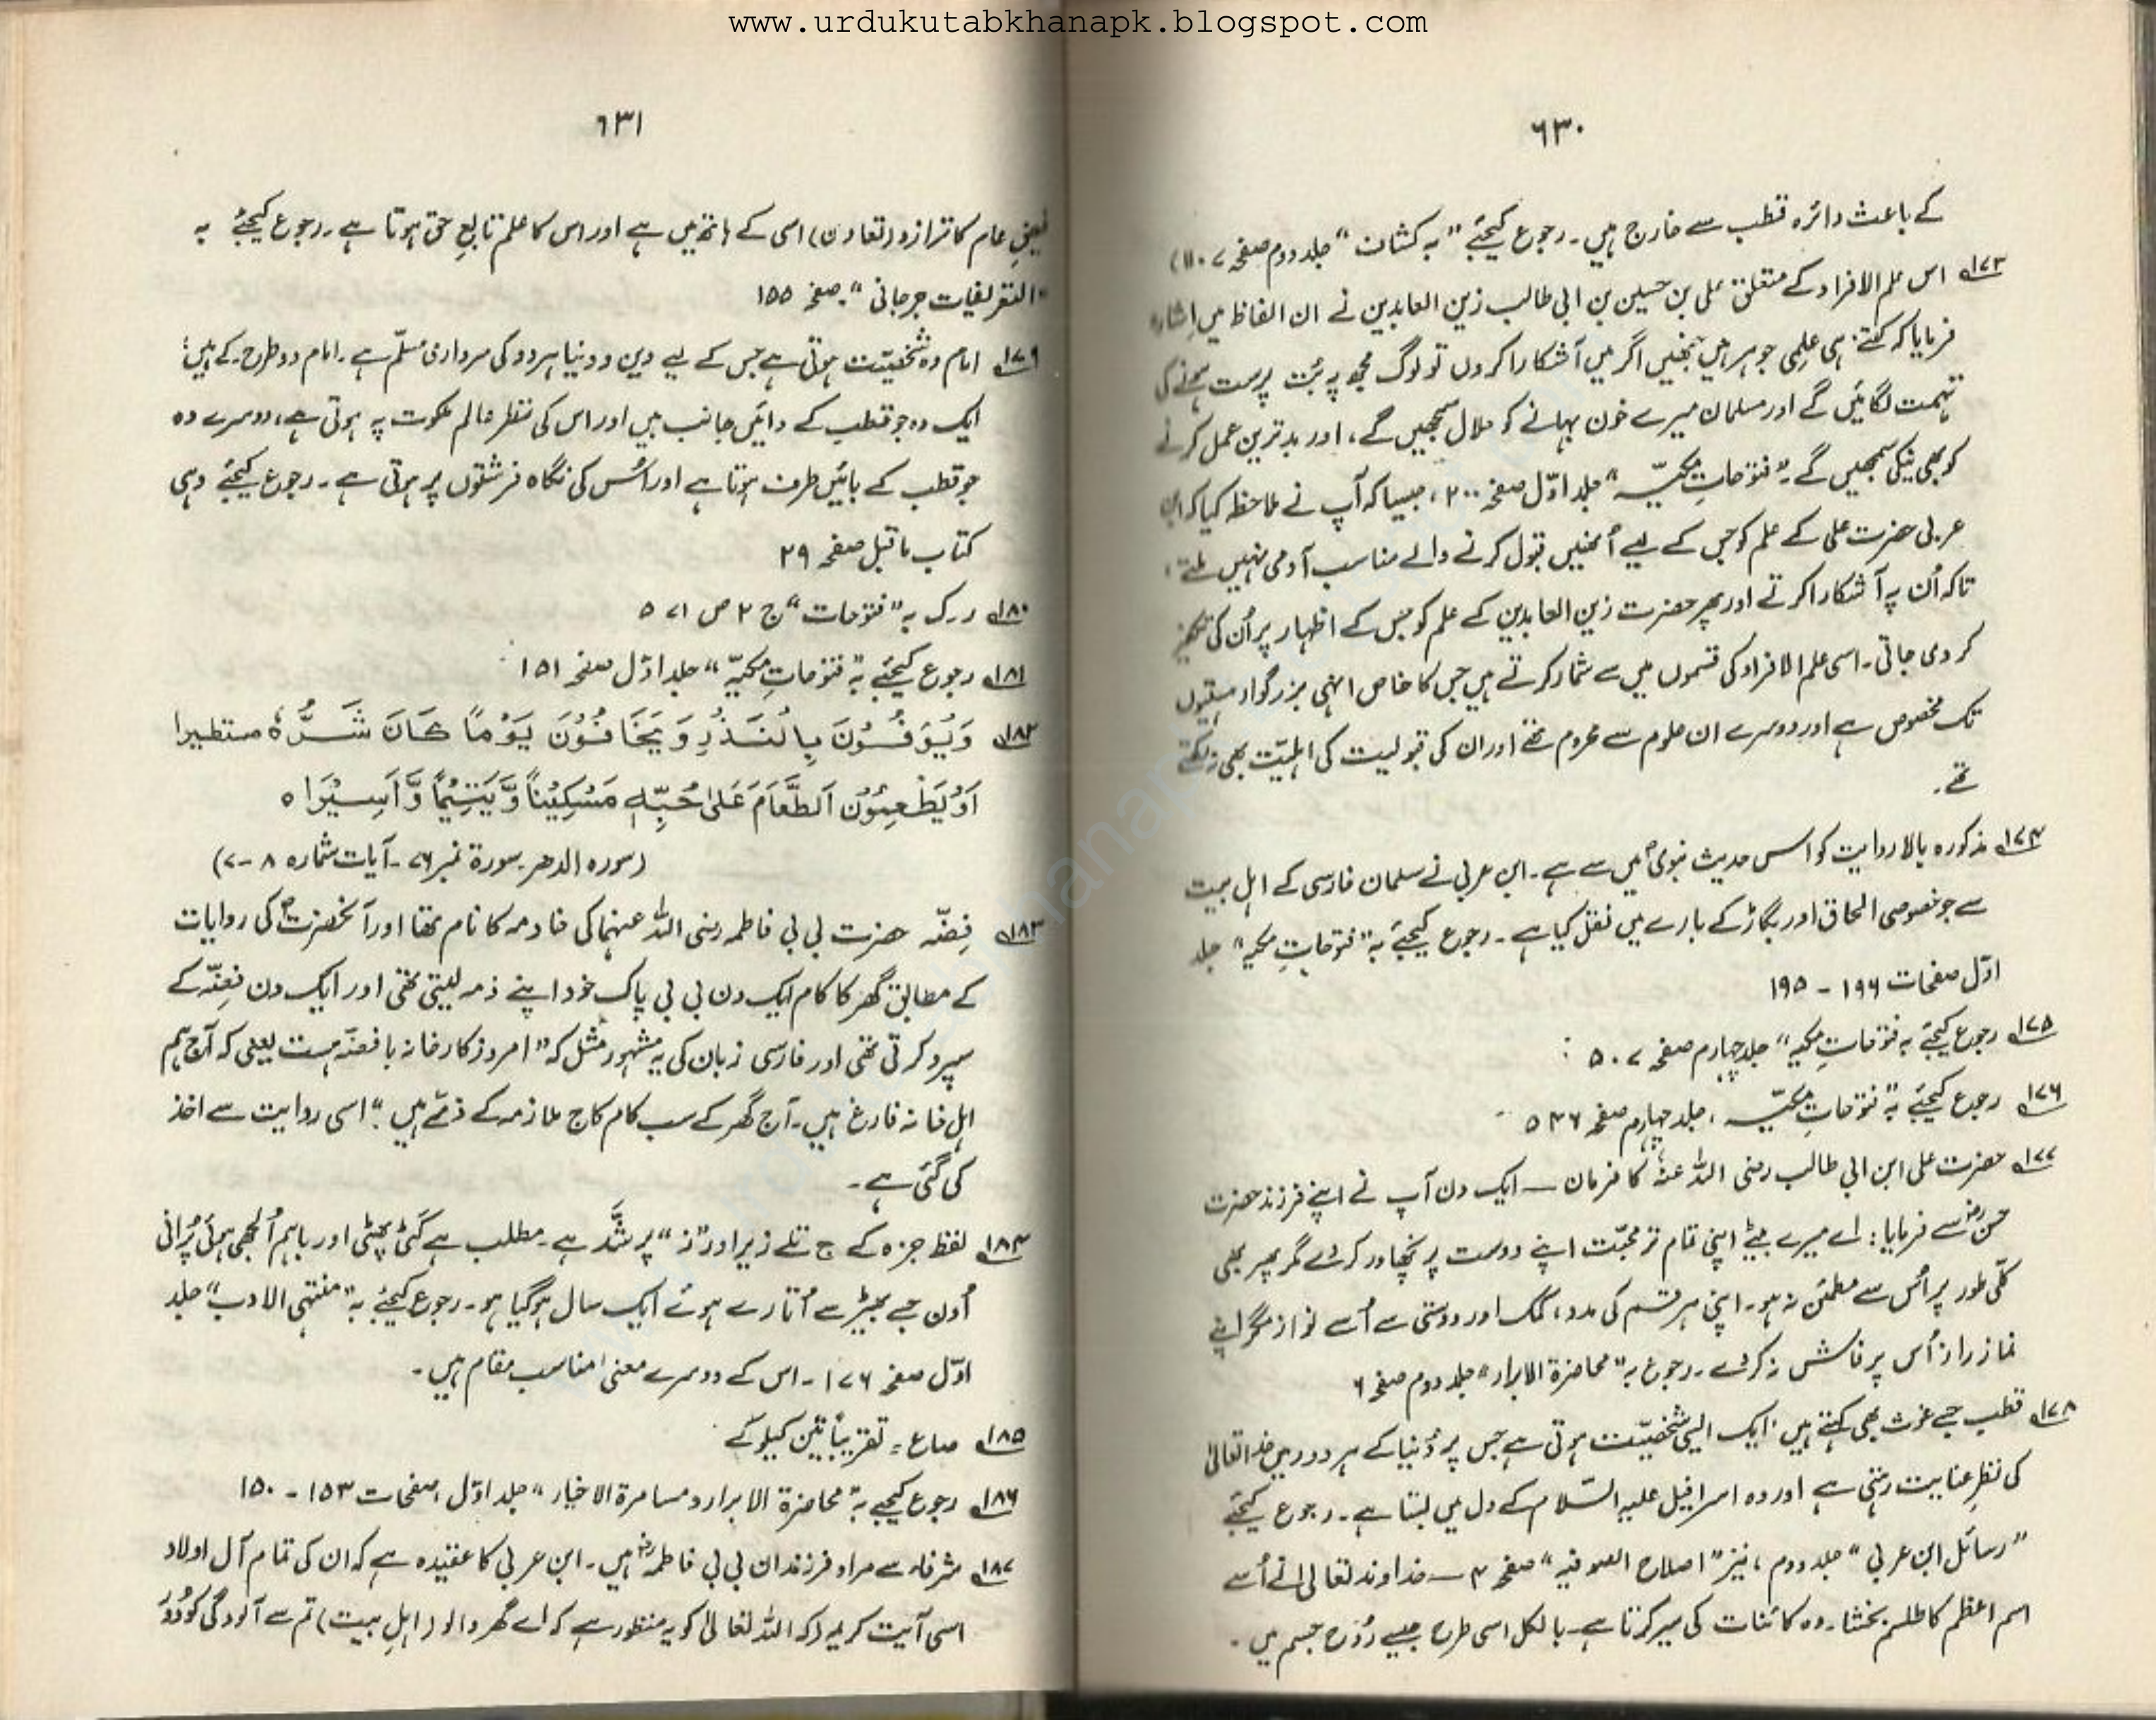 www.urdukutabkhanapk.blogspot.com
۶۳۰
کے باعث دائرہ قطب سے خارج ہیں۔ رجوع کیجئے "بہ کشاف" جلد دوم صفحہ ۱۱۰۷)
۱۷۳ اس علم الافراد کے متعلق علی بن حسین بن ابی طالب زین العابدین نے ان الفاظ میں اشارہ
فرمایا کہ کتنے ہی علمِی جوہر ہیں جنھیں اگر میں آشکارا کر دوں تو لوگ مجھ پہ بُت پرست ہونے کی
تہمت لگائیں گے اور مسلمان میرے خون بہانے کو حلال سمجھیں گے، اور بدترین عمل کرنے
کو بھی نیکی سمجھیں گے۔" فتوحاتِ مکیّہ" جلد اوّل صفحہ ۲۰۰، جیسا کہ آپ نے ملاحظہ کیا کہ ابن
عربی حضرت علی کے علم کو جس کے لیے اُنھیں قبول کرنے والے مناسب آدمی نہیں ملتے،
تاکہ اُن پہ آشکارا کرتے اور پھر حضرت زین العابدین کے علم کو جس کے اظہار پر اُن کی تکفیر
کر دی جاتی۔ اسی علم الافراد کی قسموں میں سے شمار کرتے ہیں جس کا خاص انہی بزرگوار ہستیوں
تک مخصوص ہے اور دوسرے ان علوم سے محروم تھے اور ان کی قبولیت کی اہلیّت بھی نہ رکھتے
تھے۔
۱۷۴ مذکورہ بالا روایت کو اس حدیث نبویؐ میں سے ہے۔ ابن عربی نے سلمان فارسی کے اہل بیت
سے جو خصوصی الحاق اور بگاڑ کے بارے میں نقل کیا ہے۔ رجوع کیجئے بہ "فتوحاتِ مکیہ" جلد
اوّل صفحات ۱۹۶ - ۱۹۵
۱۷۵ رجوع کیجئے بہ فتوحاتِ مکیہ" جلد چہارم صفحہ ۵۰۷
۱۷۶ رجوع کیجئے بہ "فتوحاتِ مکیّہ، جلد چہارم صفحہ ۵۳۶
۱۷۷ حضرت علی ابن ابی طالب رضی اللہ عنہٗ کا فرمان — ایک دن آپ نے اپنے فرزند حضرت
حسنؓ سے فرمایا: اے میرے بیٹے اپنی تمام تر محبّت اپنے دوست پر نچھاور کر دے مگر پھر بھی
کلّی طور پر اُس سے مطمئن نہ ہو۔ اپنی ہر قسم کی مدد، کمک اور دوستی سے اُسے نواز مگر اپنے
تمام راز اُس پر فاش نہ کر دے۔ رجوع بہ "محاضرۃ الابرار" جلد دوم صفحہ ۶
۱۷۸ قطب جسے غوث بھی کہتے ہیں، ایک ایسی شخصیّت ہوتی ہے جس پر دُنیا کے ہر دور میں خدا تعالیٰ
کی نظرِ عنایت رہتی ہے اور وہ اسرافیل علیہ السّلام کے دل میں بستا ہے۔ رجوع کیجئے
"رسائل ابن عربی" جلد دوم، نیز "اصلاح الصوفیہ" صفحہ ۴ — خداوند تعالیٰ نے اُسے
اسم اعظم کا طلسم بخشا۔ وہ کائنات کی سیر کرتا ہے۔ بالکل اسی طرح جیسے رُوح جسم میں۔
۶۳۱
فیضِ عام کا ترازو (تعاون) اسی کے ہاتھ میں ہے اور اس کا علم تابعِ حق ہوتا ہے۔ رجوع کیجئے بہ
"التعریفات جرجانی"۔ صفحہ ۱۵۵
۱۷۹ امام وہ شخصیّت ہوتی ہے جس کے لیے دین و دنیا ہر دو کی سرداری مسلّم ہے۔ امام دو طرح کے ہیں؛
ایک وہ جو قطب کے دائیں جانب ہیں اور اس کی نظر عالم ملکوت پہ ہوتی ہے، دوسرے وہ
جو قطب کے بائیں طرف ہوتا ہے اور اُس کی نگاہ فرشتوں پر ہوتی ہے۔ رجوع کیجئے وہی
کتاب ماقبل صفحہ ۲۹
۱۸۰ ر۔ک بہ "فتوحات" ج ۲ ص ۵۷۱
۱۸۱ رجوع کیجئے بہ "فتوحاتِ مکیّہ" جلد اوّل صفحہ ۱۵۱
۱۸۲ وَیُوْفُوْنَ بِالنَّذْرِ وَ یَخَافُوْنَ یَوْمًا کَانَ شَرُّہٗ مستطیرا
اَوْ یَطْعِمُوْنَ اَلطَّعَامَ عَلیٰ حُبِّہٖ مَسْکِیْناً وَّ یَتِیْماً وَّ اَسِیْرَا ہ
(سورہ الدھر۔ سورۃ نمبر ۷۶۔ آیات شمارہ ۸ - ۷)
۱۸۳ فِضّہ حضرت بی بی فاطمہ رضی اللہ عنہا کی خادمہ کا نام تھا اور آنحضرتؐ کی روایات
کے مطابق گھر کا کام ایک دن بی بی پاک خود اپنے ذمہ لیتی تھی اور ایک دن فِضّہ کے
سپرد کرتی تھی اور فارسی زبان کی یہ مشہور مثل کہ "امروز کارخانہ با فضّہ ہست یعنی کہ آج ہم
اہل خانہ فارغ ہیں۔ آج گھر کے سب کام کاج ملازمہ کے ذمّے ہیں"۔ اسی روایت سے اخذ
کی گئی ہے۔
۱۸۴ لفظ جزہ کے ج تلے زیر اور "ز" پر شَّد ہے۔ مطلب ہے کَٹی پھٹی اور باہم اُلجھی ہوئی پُرانی
اُون جسے بھیڑ سے اُتارے ہوئے ایک سال ہو گیا ہو۔ رجوع کیجئے بہ "منتہی الادب" جلد
اوّل صفحہ ۱۷۶۔ اس کے دوسرے معنی نامناسب مقام ہیں۔
۱۸۵ صاع = تقریباً تین کیلو گے
۱۸۶ رجوع کیجیے بہ "محاضرۃ الابرار و مسامرۃ الاخیار" جلد اوّل، صفحات ۱۵۳ - ۱۵۰
۱۸۷ شرفاء سے مراد فرزندان بی بی فاطمہؓ ہیں۔ ابن عربی کا عقیدہ ہے کہ ان کی تمام آل اولاد
اسی آیت کریمہ (کہ اللہ تعالیٰ کو یہ منظور ہے کہ اے گھر والو (اہلِ بیت) تم سے آلودگی کو دُور